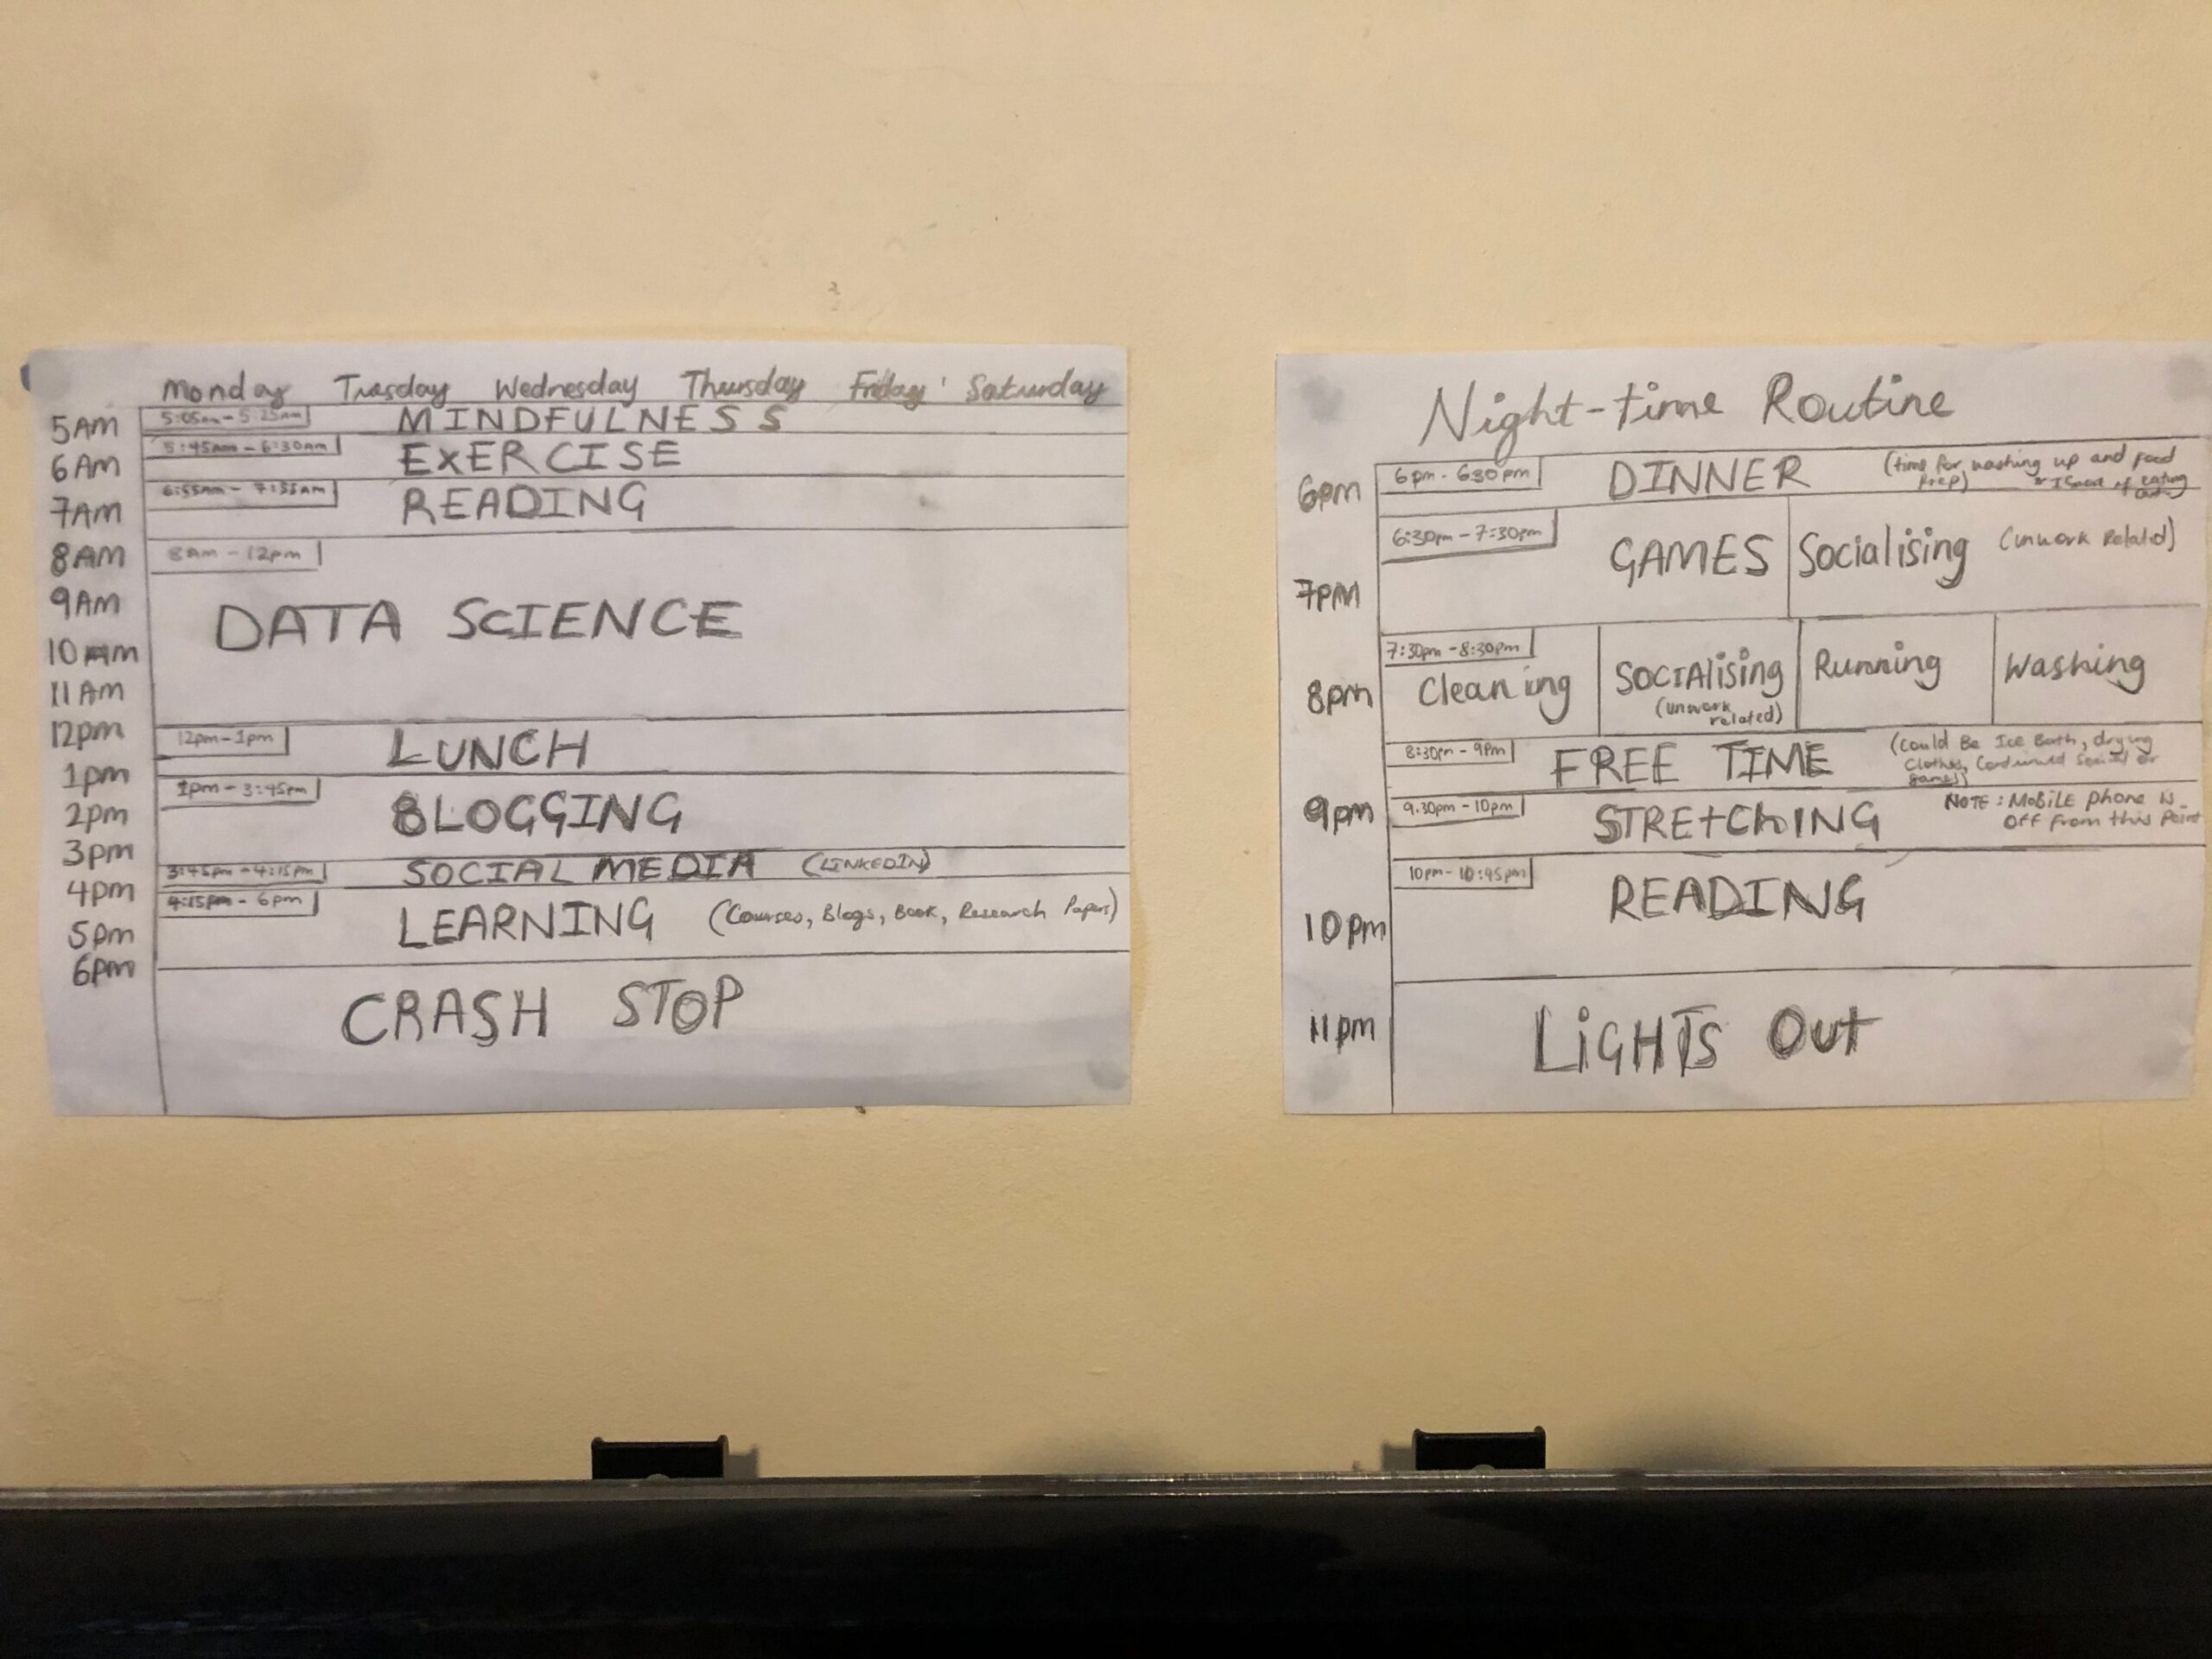 Monday Tuesday Wednesday Thursday Friday Saturday
5AM 5:05am - 5:25am MINDFULNESS
5:45am - 6:30am EXERCISE
6AM
6:55am - 7:35am READING
7AM
8AM 8am - 12pm
9AM DATA SCIENCE
10AM
11AM
12pm 12pm - 1pm LUNCH
1pm 1pm - 3:45pm
2pm BLOGGING
3pm
3:45pm - 4:15pm SOCIAL MEDIA (LINKEDIN)
4pm 4:15pm - 6pm
LEARNING (Courses, Blogs, Book, Research Papers)
5pm
6pm
CRASH STOP
Night-time Routine
6pm 6pm - 630pm DINNER (time for washing up and food
prep) of eating
out
6:30pm - 7:30pm GAMES Socialising (unwork Related)
7pm
7:30pm - 8:30pm
8pm Cleaning SOCIAlising Running Washing
(unwork
related)
8:30pm - 9pm FREE TIME (Could Be Ice Bath, drying
Clothes, Continued Social or
games)
9pm 9.30pm - 10pm STREtChING NOTE: MoBiLE phone is
Off from this Point
10pm - 10:45pm READING
10pm
11pm LiGHTS Out